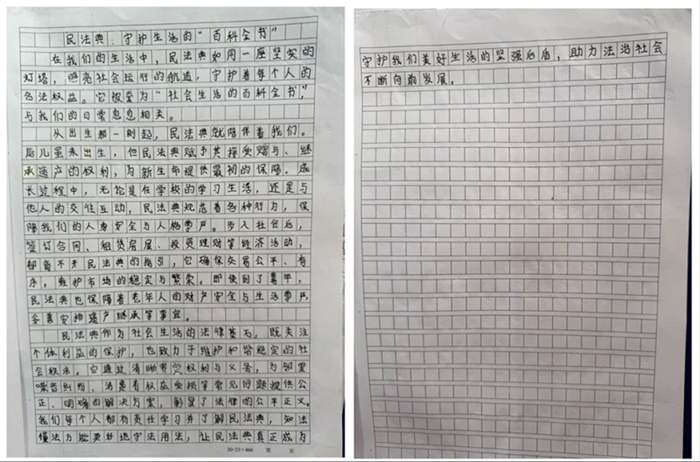 民法典:守护生活的“百科全书”
在我们的生活中,民法典如同一座坚实的
灯塔,照亮社会运行的航道,守护着每个人的
合法权益。它被誉为“社会生活的百科全书”,
与我们的日常息息相关。
从出生那一时起,民法典就陪伴着我们。
胎儿虽未出生,但民法典赋予其接受赠与、继
承遗产的权利,为新生命提供最初的保障。成
长过程中,无论是在学校的学习生活,还是与
他人的交往互动,民法典规范着各种行为,保
障我们的人身安全与人格尊严。步入社会后,
签订合同、租赁房屋、投资理财等经济活动,
都离不开民法典的指引,它确保交易公平、有
序,维护市场的稳定与繁荣。即使到了暮年,
民法典也保障着老年人的财产安全与生活尊严,
妥善安排遗产继承等事宜。
民法典作为社会生活的法律基石,既关注
个体利益的保护,也致力于维护和谐稳定的社
会秩序。它通过清晰界定权利与义务,为邻里
噪音纠纷、消费者权益受损等常见问题提供公
正、明确的解决方案,彰显了法律的公平正义。
我们每个人都有责任学习并了解民法典,知法
懂法方能更好地守法用法,让民法典真正成为
20×23=460 第 页
守护我们美好生活的坚强后盾,助力法治社会
不断向前发展。